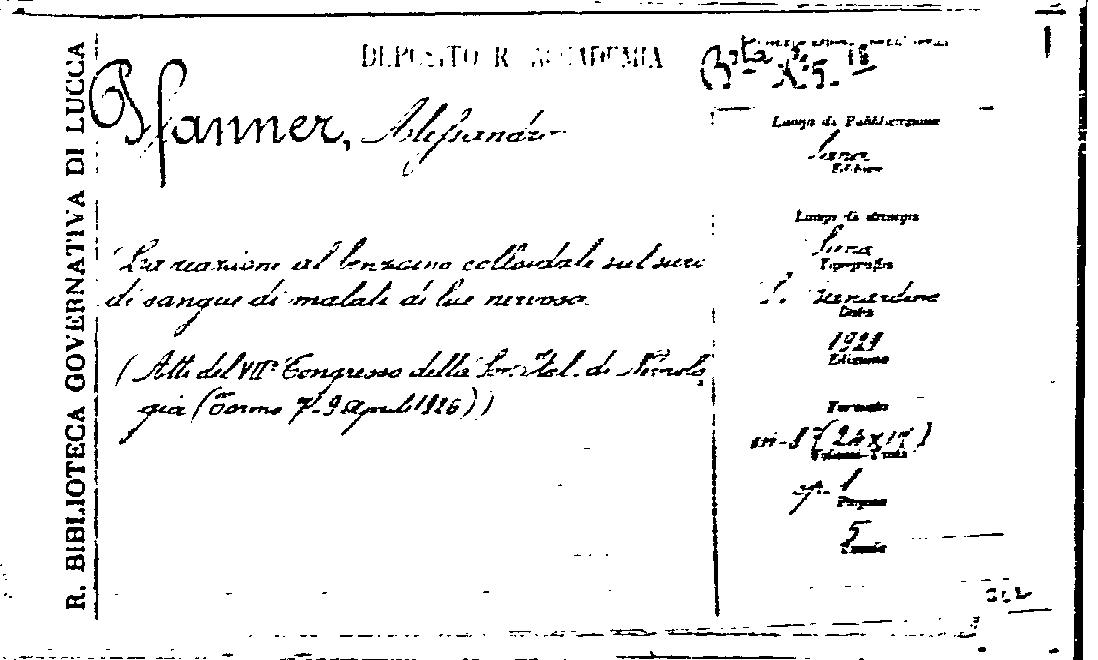 R. BIBLIOTECA GOVERNATIVA DI LUCCA
DEPOSITO R. ACCADEMIA
Bsta 18
Pfanner, Alessandro
La reazione al benzoino colloidale sul siero
di sangue di malati di lue nervosa
(Atti del VII° Congresso della Soc. Ital. di Neurolo
gia (Torino 7-9 Aprile 1926))
Luogo di Pubblicazione
Siena
Editore
Luogo di stampa
Siena
Tipografia
S. Bernardino
Data
1927
Edizione
Formato
in-8° (24x17)
Volume-Tomo
1
Pagine
5
Tavole